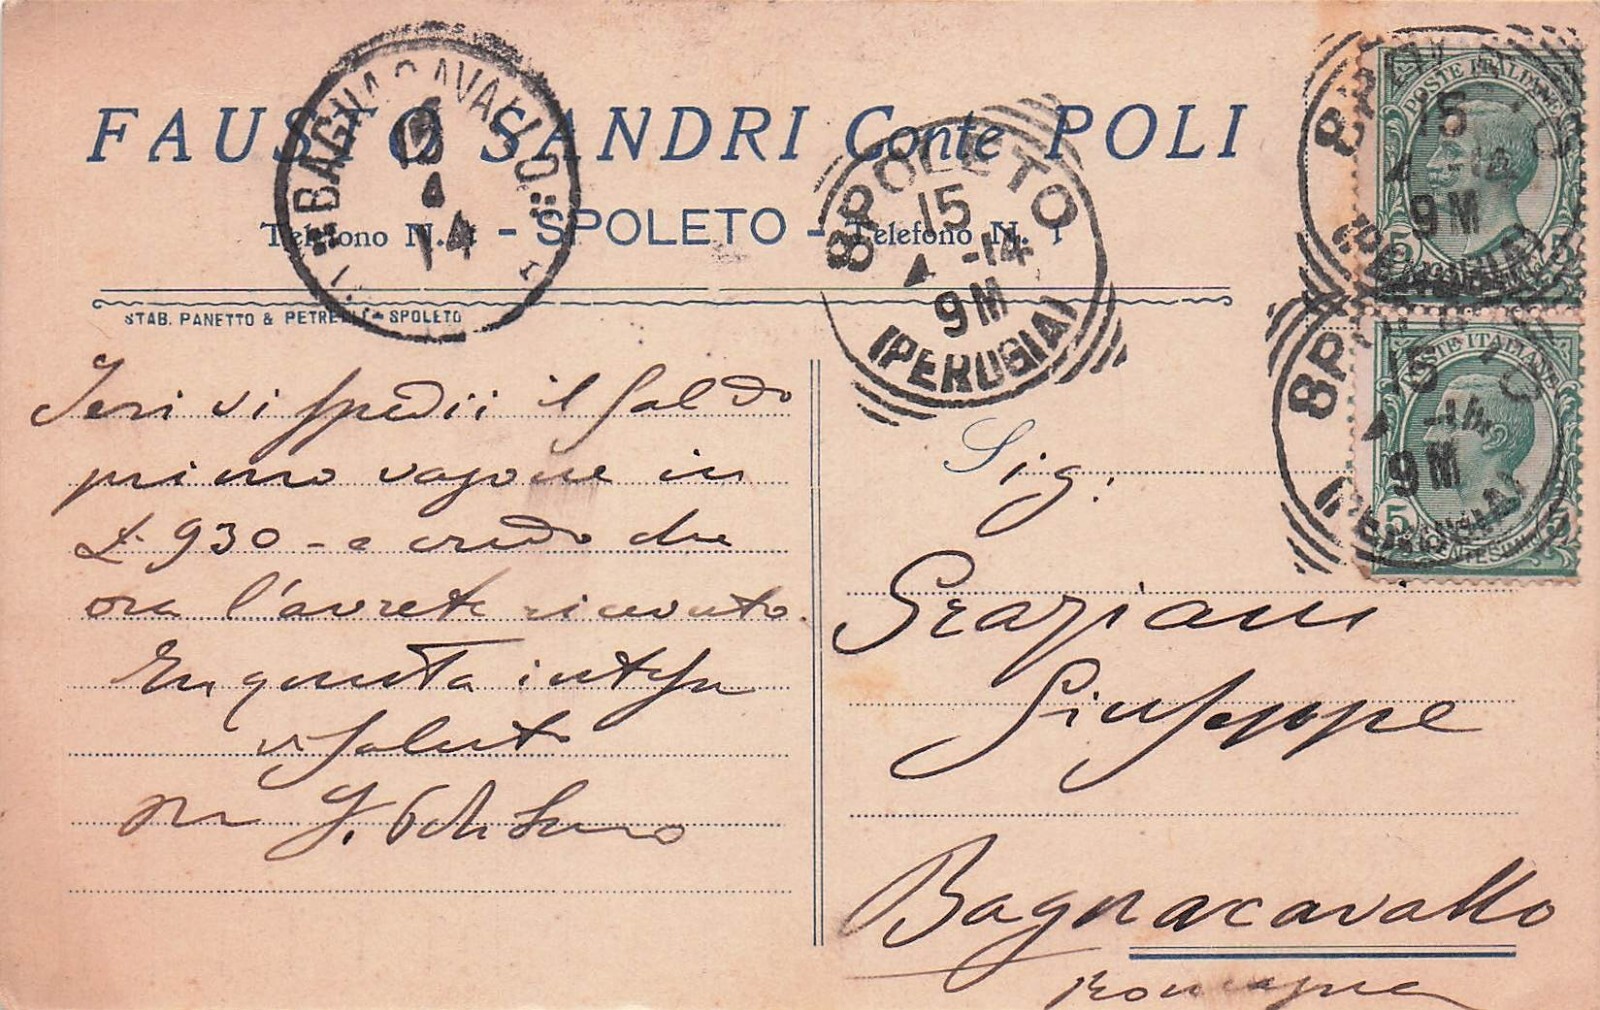 FAUSTO SANDRI Conte POLI
Telefono N. - SPOLETO - Telefono N. 1
STAB. PANETTO & PETRELLI - SPOLETO
BAGNACAVALLO
15
4
14
SPOLETO
15
4 -14
9M
(PERUGIA)
POSTE ITALIANE
SPOLETO
15
4 -14
9M
(PERUGIA)
5 5
POSTE ITALIANE
SPOLETO
15
4 -14
9M
(PERUGIA)
5 CENTESIMI 5
Ieri vi spedii il Saldo
primo vagone in
£ 930 - e credo che
ora l'avrete ricevuto.
In questa intesa
vi saluto
Sig:
Graziani
Giuseppe
Bagnacavallo
Romagna